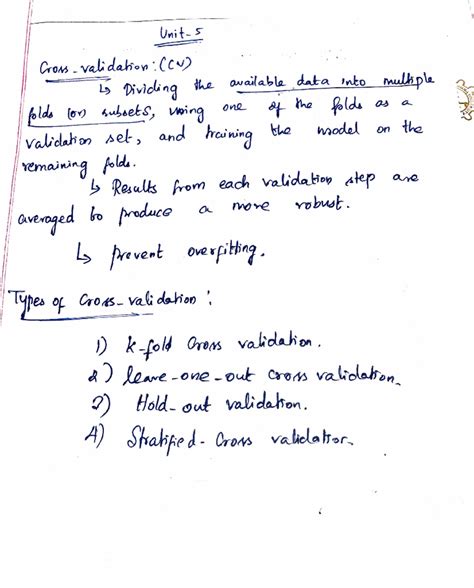 Unit-5
Cross-validation:(CV)
↳ Dividing the available data into multiple
folds (or) subsets, using one of the folds as a
validation set, and training the model on the
remaining folds.
↳ Results from each validation step are
averaged to produce a more robust.
↳ prevent overfitting.
Types of Cross-validation:
1) k-fold Cross validation.
2) leave-one-out cross validation.
3) Hold-out validation.
4) Stratified-Cross validation.